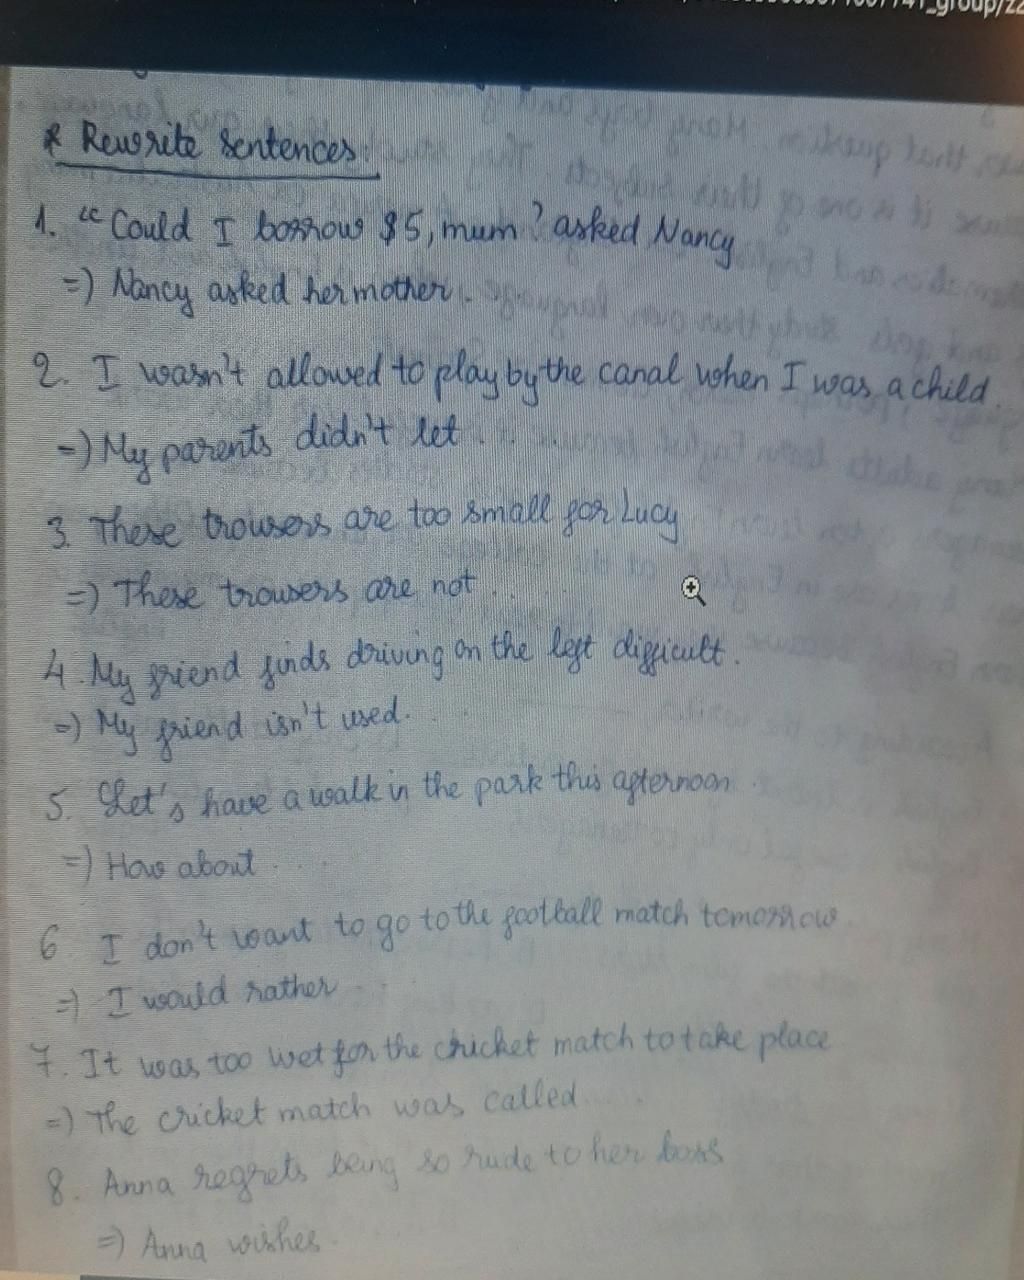 * Rewrite sentences
1. "Could I borrow $5, mum? asked Nancy
=) Nancy asked her mother.
2. I wasn't allowed to play by the canal when I was a child.
=) My parents didn't let
3. These trousers are too small for Lucy
=) These trousers are not
4. My friend finds driving on the left difficult.
=) My friend isn't used.
5. Let's have a walk in the park this afternoon.
=) How about
6. I don't want to go to the football match tomorrow.
=) I would rather
7. It was too wet for the cricket match to take place
=) The cricket match was called
8. Anna regrets being so rude to her boss
=) Anna wishes.